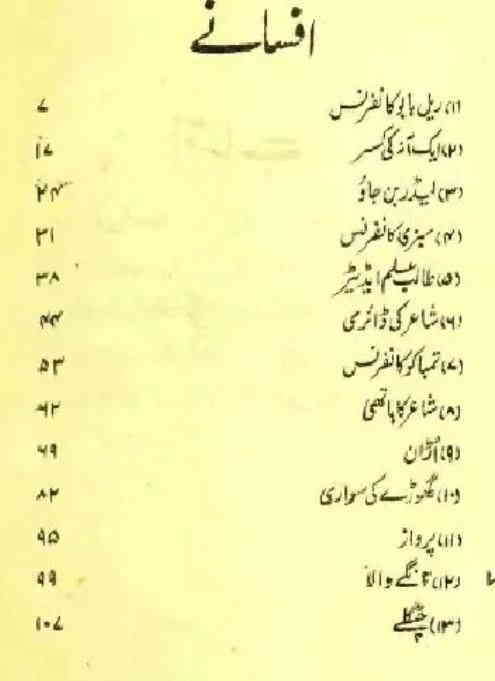 افسانے
(۱) ریل بابو کانفرنس ۷
(۲) ایک آنہ کی کسر ۱۷
(۳) لیڈر بن جاؤ ۲۴
(۴) سبزی کانفرنس ۳۱
(۵) طالب علم ایڈیٹر ۳۸
(۶) شاعر کی ڈائری ۴۴
(۷) تمباکو کانفرنس ۵۳
(۸) شاعر کا ہاتھی ۶۲
(۹) اڑان ۶۹
(۱۰) گھوڑے کی سواری ۸۲
(۱۱) پرواز ۹۵
(۱۲) تانگے والا ۹۹
(۱۳) چٹکلے ۱۰۷